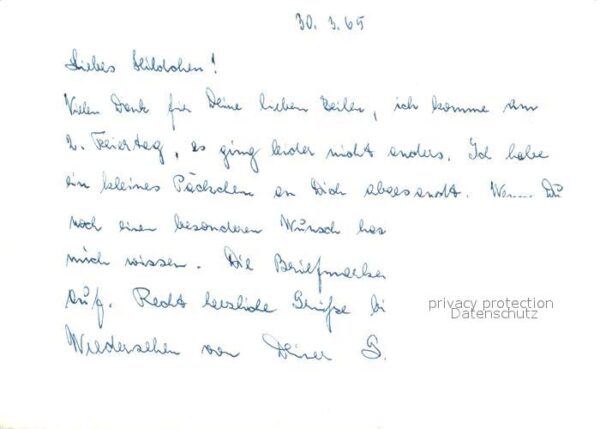 30. 3. 65
Liebes Hildchen!
Vielen Dank für Deine lieben Zeilen, ich komme am
2. Feiertag, es ging leider nicht anders. Ich habe
ein kleines Päckchen an Dich abgesandt. Wenn Du
noch einen besonderen Wunsch has
mich wissen. Die Briefmarken
auf. Recht herzliche Grüße bi
Wiedersehen von Deiner G.
privacy protection
Datenschutz